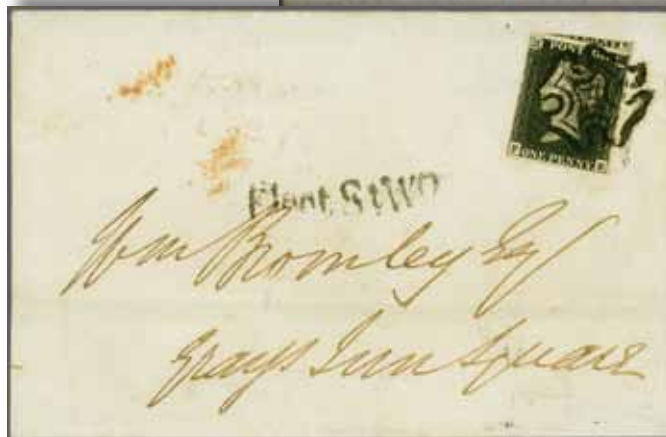 POST
ONE PENNY
Fleet St WO
Wm Bromley Esq
Grays Inn Square